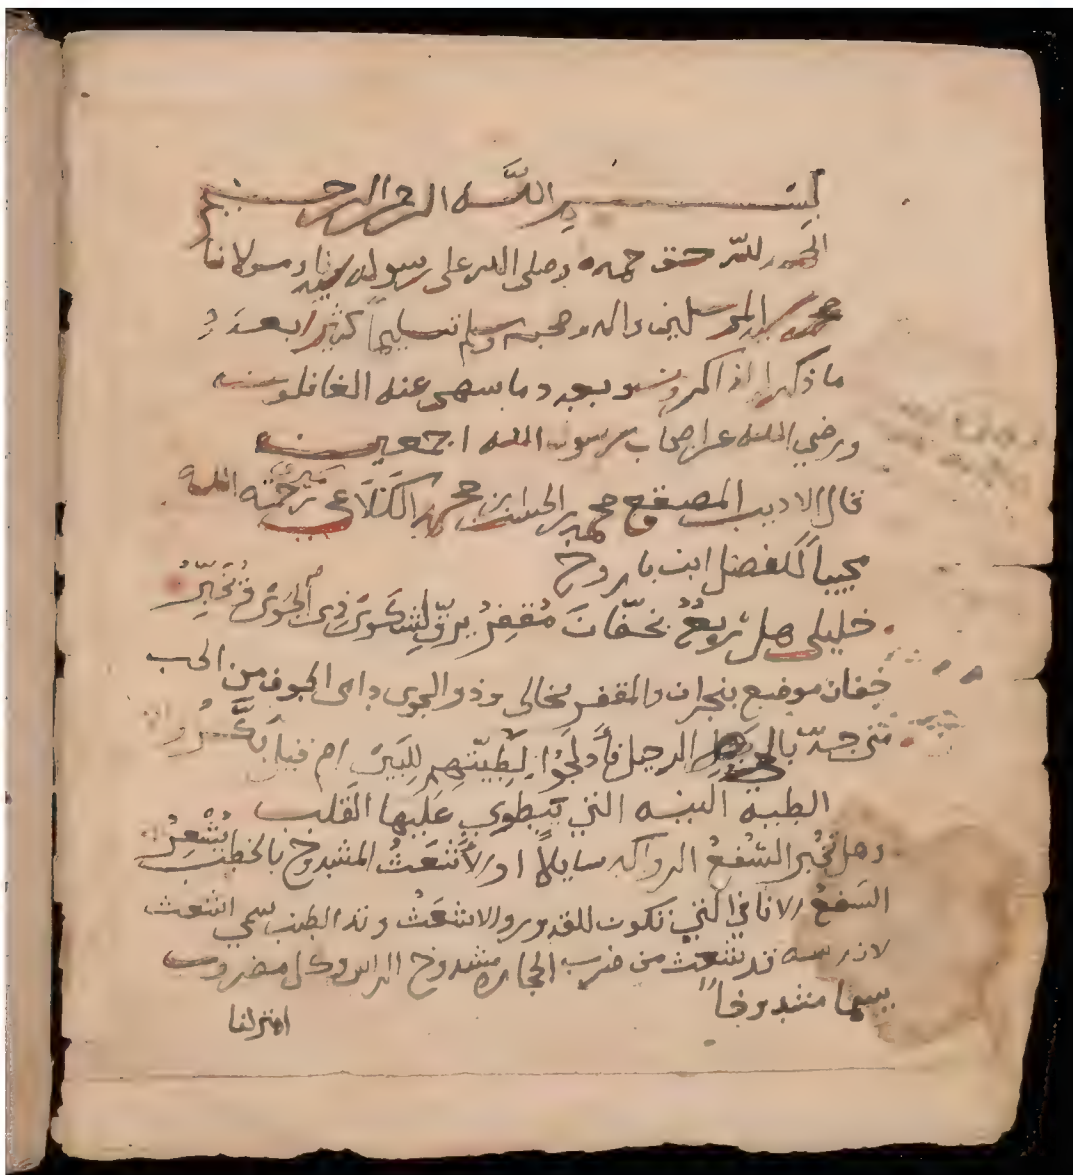 بسم الله الرحمن الرحيم
الحمد لله حق حمده وصلى الله على رسوله سيدنا ومولانا
محمد سيد المرسلين واله وصحبه وسلم تسليماً كثيراً بعدد
ما ذكره الذاكرون وبعدد ما سهى عنه الغافلون
ورضي الله عن اصحاب رسول الله اجمعين
قال الاديب المصقع محمد بن الحسن بن محمد الكَلَاعي رحمة الله
مجيباً للفضل ابن باروح
خليلي هل ربعٌ بخفّان مُقفِرُ يرقّ لشكوى ذي الجوى فيُخَبِّرُ
خفان موضع بنجران والمقفر الخالي وذو الجوى داى الجوف من الحب
متى جدّ بالحي الرحيل فأدلجوا لِطِيّتهم للبين ام فيه بكّروا
الطيه النيه التي ينطوي عليها القلب
وهل تخبر السُفعُ الرواكد سايلاً او الأشعَثُ المشدوخ بالخطب يُشْعِرُ
السُفعُ الاثافي التي تكون للقدور والاشعَثُ وتد الطنب سمي اشعث
لان راسه قد شعث من ضرب الحجاره مشدوخ الراس وكل مضروب
يسما مشدوخاً
امنزلنا